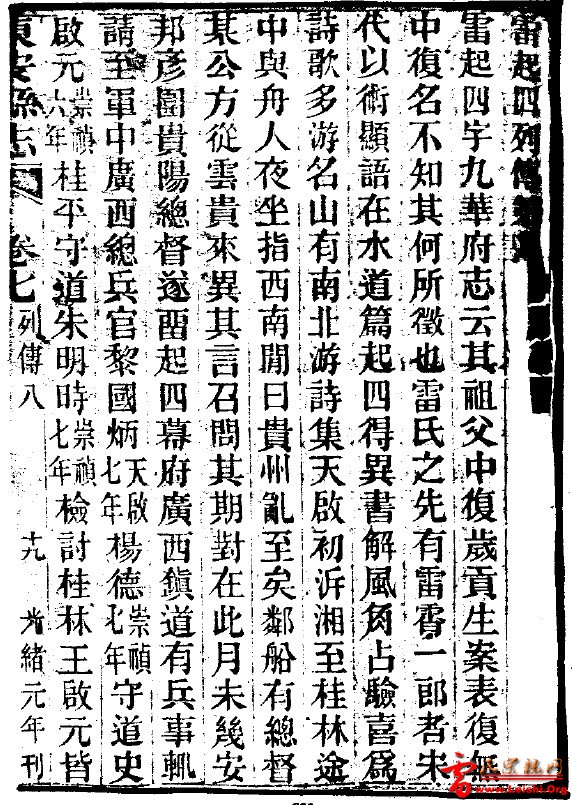 雷起四列傳
雷起四字九華府志云其祖父中復歲貢生案表復無
中復名不知其何所徵也雷氏之先有雷霄一郎者朱
代以術顯語在水道篇起四得異書解風角占驗喜為
詩歌多游名山有南北游詩集天啟初泝湘至桂林途
中與舟人夜坐指西南閒曰貴州亂至矣鄰船有總督
某公方從雲貴來異其言召問其期對在此月未幾安
邦彥圍貴陽總督遂畱起四幕府廣西鎮道有兵事輒
請至軍中廣西總兵官黎國炳天啟七年楊德崇禎七年守道史
啟元崇禎六年桂平守道朱明時崇禎七年檢討桂林王啟元皆
東安縣志 卷七列傳八 十九 光緒元年刊
雷氏宗族网
www.Leishi.Org